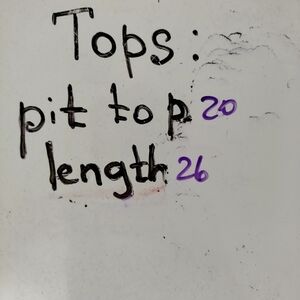 Tops:
pit to p 20
length 26